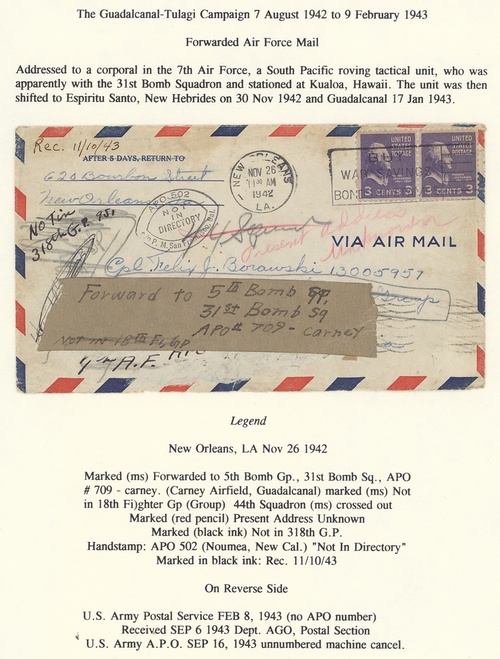 The Guadalcanal-Tulagi Campaign 7 August 1942 to 9 February 1943
Forwarded Air Force Mail
Addressed to a corporal in the 7th Air Force, a South Pacific roving tactical unit, who was
apparently with the 31st Bomb Squadron and stationed at Kualoa, Hawaii. The unit was then
shifted to Espiritu Santo, New Hebrides on 30 Nov 1942 and Guadalcanal 17 Jan 1943.
Rec. 11/10/43
AFTER 5 DAYS, RETURN TO
620 Bourbon Street
New Orleans
APO. 502
NOT
IN
DIRECTORY
P. M. San Francisco, Cal.
NEW ORLEANS
NOV 26
11 AM
1942
LA.
BUY
WAR SAVINGS
BON
UNITED STATES POSTAGE
3 CENTS 3
UNITED STATES POSTAGE
3 CENTS 3
Not in
318th G.P.
44 Squad
Present address
Unknown
VIA AIR MAIL
Cpl. Felix J. Borawski 13005957
Group
Forward to 5th Bomb gp,
31st Bomb Sq
APO# 709 - Carney
Not in 18th Ftr Gp
7th A.F.
Legend
New Orleans, LA Nov 26 1942
Marked (ms) Forwarded to 5th Bomb Gp., 31st Bomb Sq., APO
# 709 - carney. (Carney Airfield, Guadalcanal) marked (ms) Not
in 18th Fi)ghter Gp (Group) 44th Squadron (ms) crossed out
Marked (red pencil) Present Address Unknown
Marked (black ink) Not in 318th G.P.
Handstamp: APO 502 (Noumea, New Cal.) "Not In Directory"
Marked in black ink: Rec. 11/10/43
On Reverse Side
U.S. Army Postal Service FEB 8, 1943 (no APO number)
Received SEP 6 1943 Dept. AGO, Postal Section
U.S. Army A.P.O. SEP 16, 1943 unnumbered machine cancel.